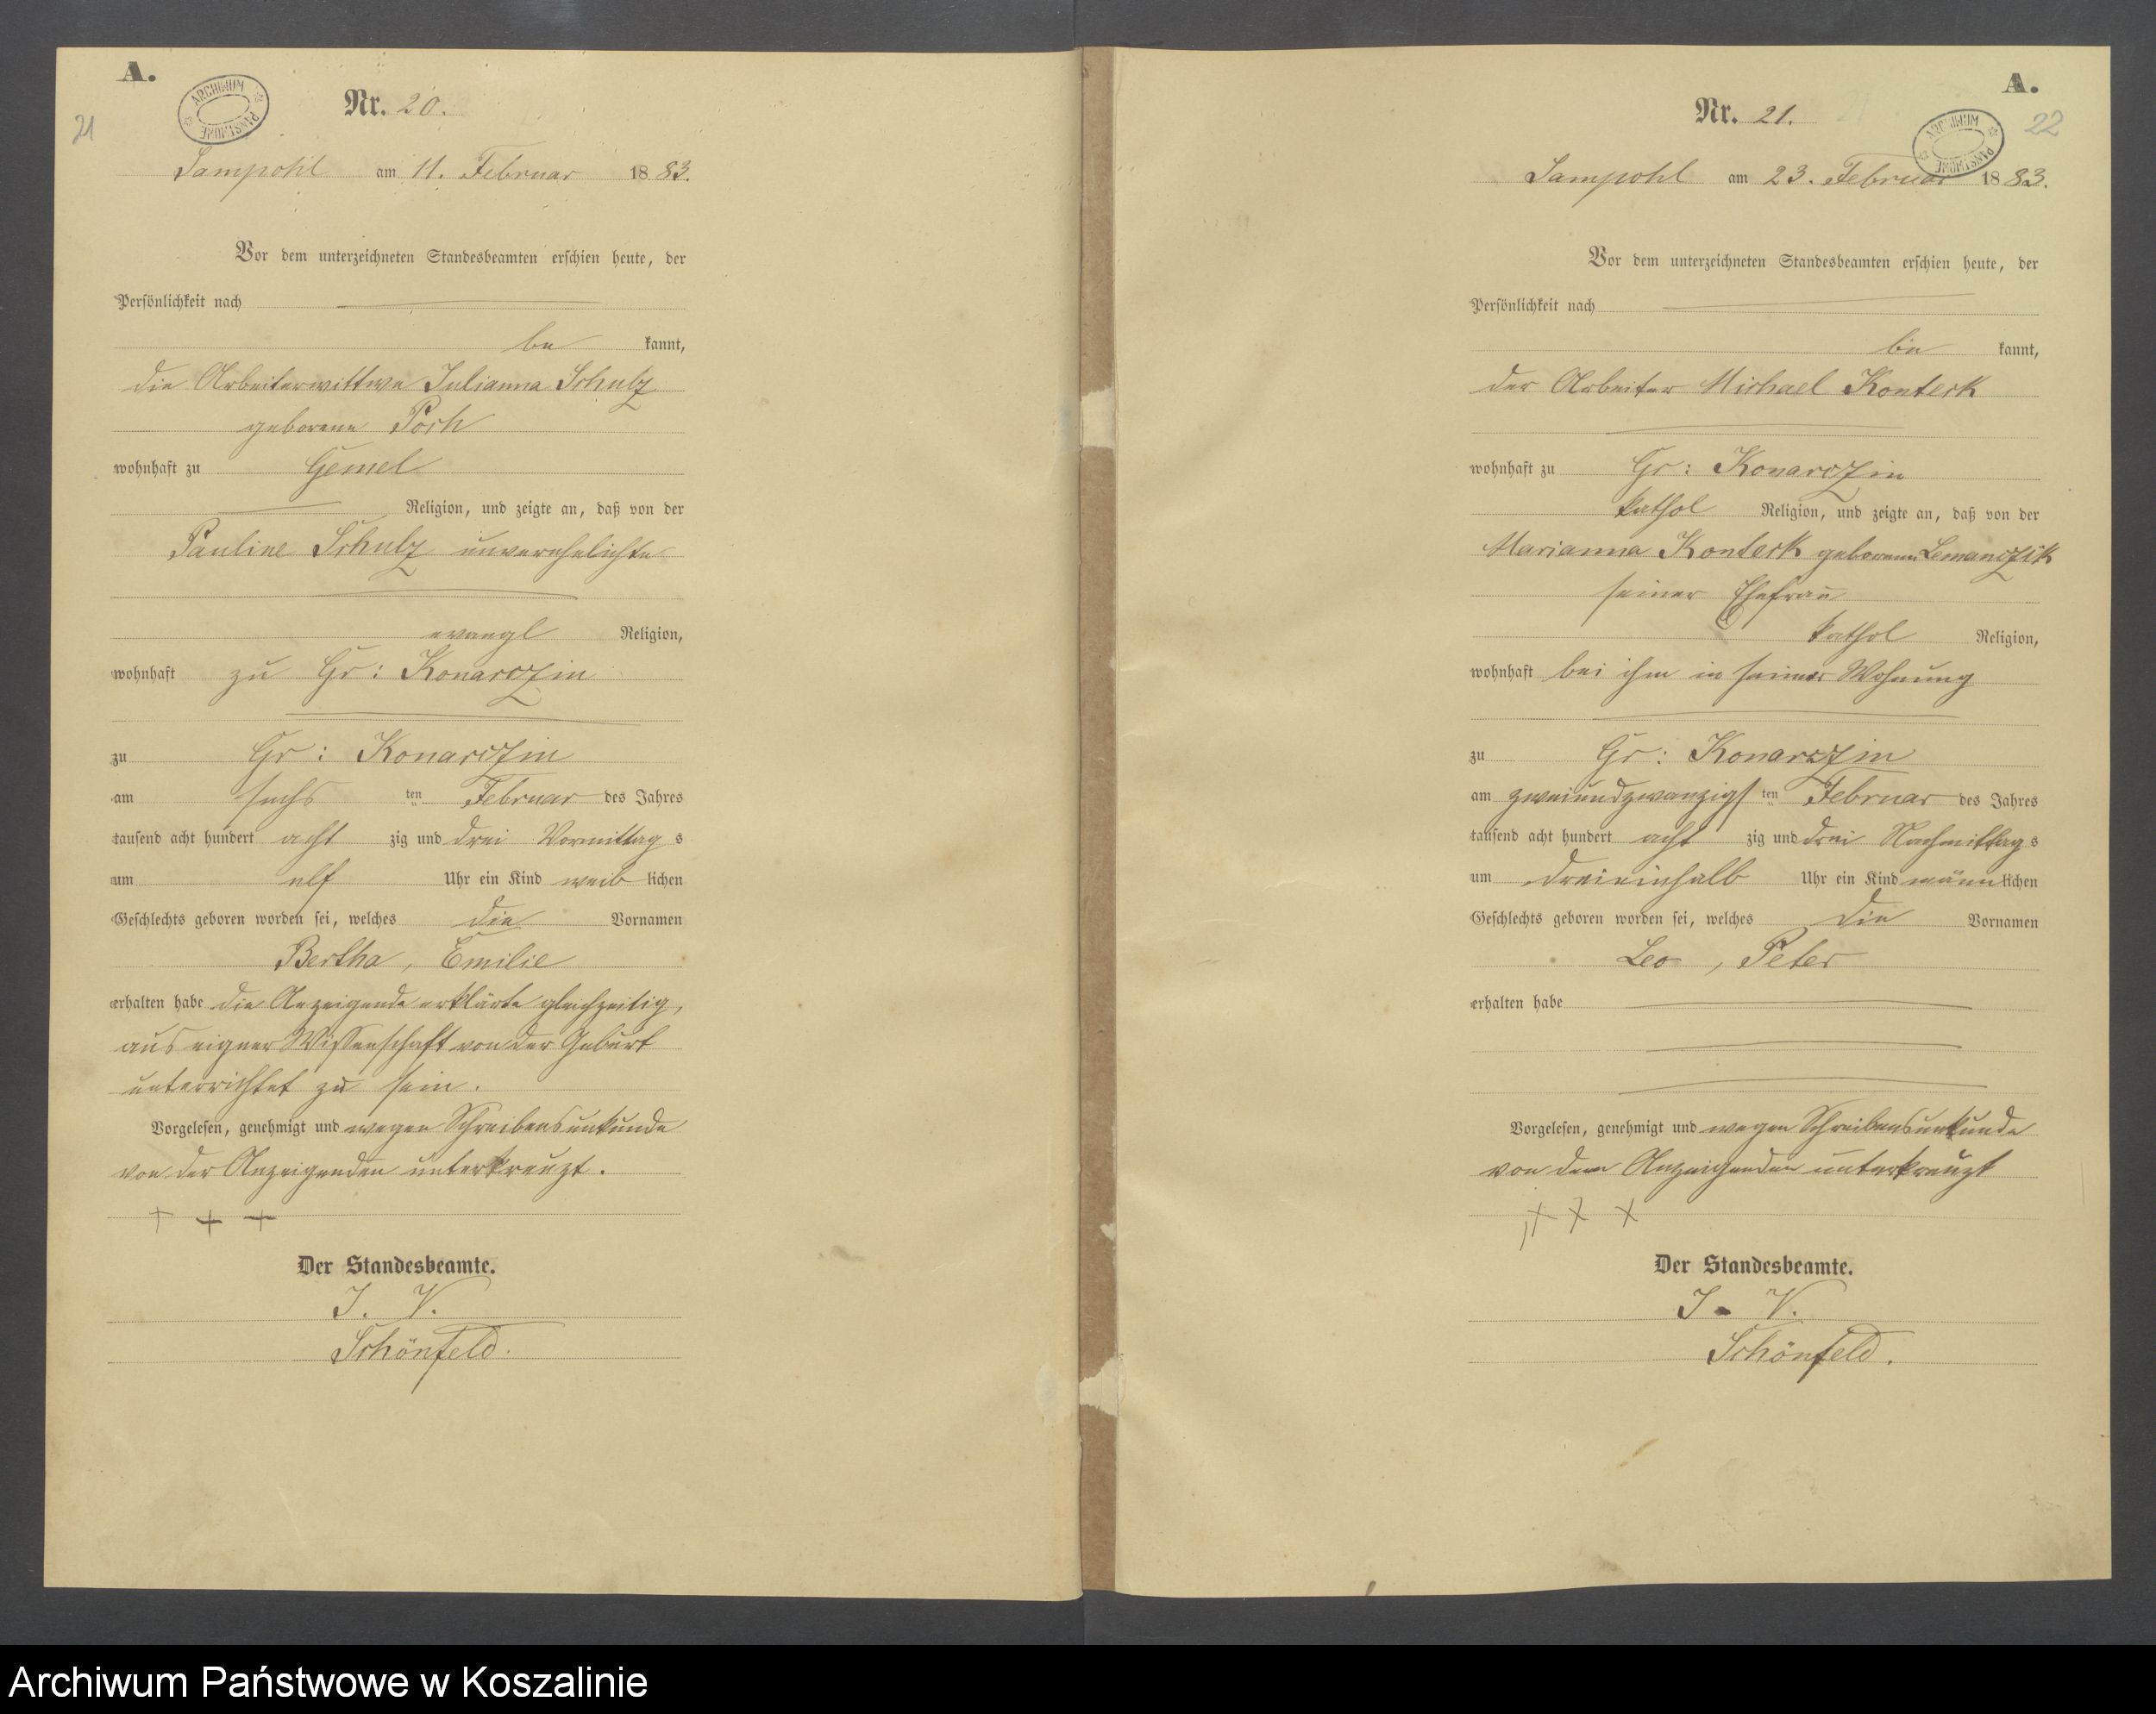 A.
ARCHIWUM PAŃSTWOWE
21
Nr. 20.
Sampohl am 11. Februar 1883.
Vor dem unterzeichneten Standesbeamten erschien heute, der
Persönlichkeit nach
be kannt,
die Arbeiterwittwe Julianna Schulz
geborene Posh
wohnhaft zu Gemel
Religion, und zeigte an, daß von der
Pauline Schulz unverehelichte
evangl Religion,
wohnhaft zu Gr: Konarczin
zu Gr: Konarczin
am sechs ten Februar des Jahres
tausend acht hundert acht zig und drei Vormittag s
um elf Uhr ein Kind weib lichen
Geschlechts geboren worden sei, welches die Vornamen
Bertha, Emilie
erhalten habe die Anzeigende erklärte gleichzeitig,
aus eigner Wissenschaft von der Geburt
unterrichtet zu sein.
Vorgelesen, genehmigt und wegen Schreibensunkunde
von der Anzeigenden unterkreuzt.
+ + +
Der Standesbeamte.
J. V.
Schönfeld.
A.
ARCHIWUM PAŃSTWOWE
22
Nr. 21.
Sampohl am 23. Februar 1883.
Vor dem unterzeichneten Standesbeamten erschien heute, der
Persönlichkeit nach
be kannt,
der Arbeiter Michael Konteck
wohnhaft zu Gr: Konarczin
kathol Religion, und zeigte an, daß von der
Marianna Konteck geborene Lemanczik
seiner Ehefrau
kathol Religion,
wohnhaft bei ihm in seiner Wohnung
zu Gr: Konarczin
am zweiundzwanzigs ten Februar des Jahres
tausend acht hundert acht zig und drei Nachmittag s
um dreieinhalb Uhr ein Kind männ lichen
Geschlechts geboren worden sei, welches die Vornamen
Leo, Peter
erhalten habe
Vorgelesen, genehmigt und wegen Schreibensunkunde
von dem Anzeigenden unterkreuzt
+ + +
Der Standesbeamte.
J. V.
Schönfeld.
Archiwum Państwowe w Koszalinie